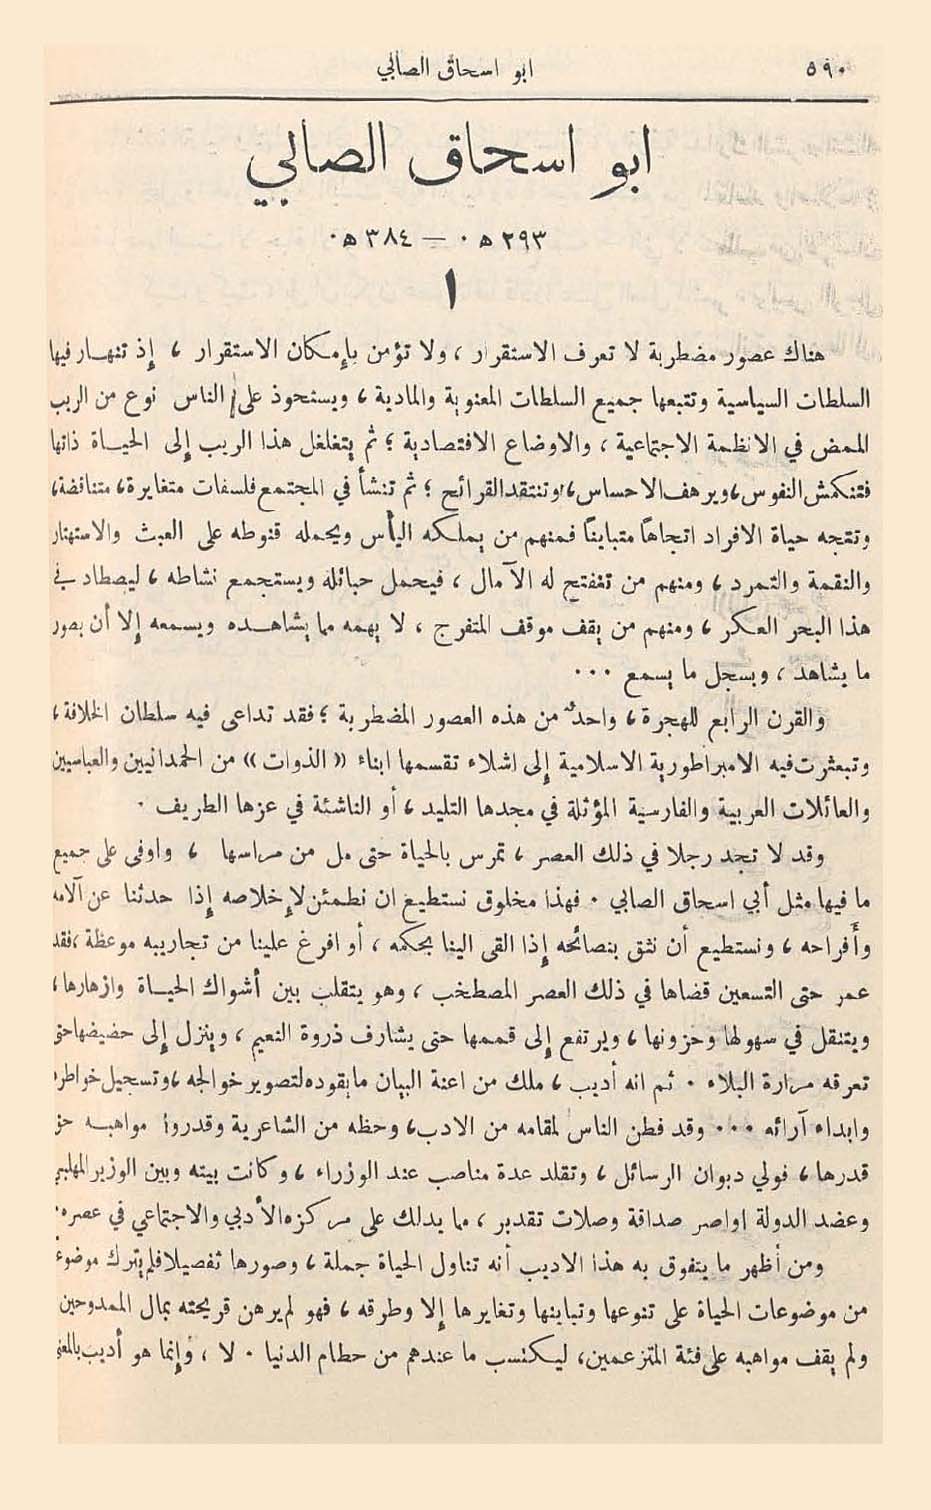 ٥٩٠
ابو اسحاق الصابي
ابو اسحاق الصابي
٢٩٣ ه. — ٣٨٤ ه.
١
هناك عصور مضطربة لا تعرف الاستقرار، ولا تؤمن بإمكان الاستقرار، إذ تنهار فيها
السلطات السياسية وتتبعها جميع السلطات المعنوية والمادية، ويستحوذ على الناس نوع من الريب
الممض في الانظمة الاجتماعية، والاوضاع الاقتصادية؛ ثم يتغلغل هذا الريب إلى الحياة ذاتها
فتنكمش النفوس، ويرهف الاحساس، وتنتقد القرائح؛ ثم تنشأ في المجتمع فلسفات متغايرة، متناقضة،
وتتجه حياة الافراد اتجاهاً متبايناً فمنهم من يملكه اليأس ويحمله قنوطه على العبث والاستهتار
والنقمة والتمرد، ومنهم من تتفتح له الآمال، فيحمل حبائله ويستجمع نشاطه، ليصطاد في
هذا البحر العكر، ومنهم من يقف موقف المتفرج، لا يهمه مما يشاهده ويسمعه إلا أن يصور
ما يشاهد، ويسجل ما يسمع ...
والقرن الرابع للهجرة، واحد من هذه العصور المضطربة؛ فقد تداعى فيه سلطان الخلافة،
وتبعثرت فيه الامبراطورية الاسلامية إلى اشلاء تقسمها ابناء «الذوات» من الحمدانيين والعباسيين
والعائلات العربية والفارسية المؤثلة في مجدها التليد، أو الناشئة في عزها الطريف.
وقد لا تجد رجلا في ذلك العصر، تمرس بالحياة حتى مل من مراسها، واوفى على جميع
ما فيها مثل أبي اسحاق الصابي. فهذا مخلوق نستطيع ان نطمئن لإخلاصه إذا حدثنا عن آلامه
وأفراحه، ونستطيع أن نثق بنصائحه إذا القى الينا بحكمه، أو افرغ علينا من تجاريبه موعظة، فقد
عمر حتى التسعين قضاها في ذلك العصر المصطخب، وهو يتقلب بين أشواك الحياة وازهارها،
ويتنقل في سهولها وحزونها، ويرتفع إلى قممها حتى يشارف ذروة النعيم، وينزل إلى حضيضها حتى
تعرفه مرارة البلاء. ثم انه أديب، ملك من اعنة البيان ما يقوده لتصوير خوالجه، وتسجيل خواطره
وابداء آرائه ... وقد فطن الناس لمقامه من الادب، وحظه من الشاعرية وقدروا مواهبه حق
قدرها، فولي ديوان الرسائل، وتقلد عدة مناصب عند الوزراء، وكانت بيته وبين الوزير المهلبي
وعضد الدولة اواصر صداقة وصلات تقدير، مما يدلك على مركزه الأدبي والاجتماعي في عصره.
ومن أظهر ما يتفوق به هذا الاديب أنه تناول الحياة جملة، وصورها تفصيلا فلم يترك موضوعاً
من موضوعات الحياة على تنوعها وتباينها وتغايرها إلا وطرقه، فهو لم يرهن قريحته بمال الممدوحين
ولم يقف مواهبه على فئة المتزعمين، ليكتسب ما عندهم من حطام الدنيا. لا، وإنما هو أديب بالمعنى